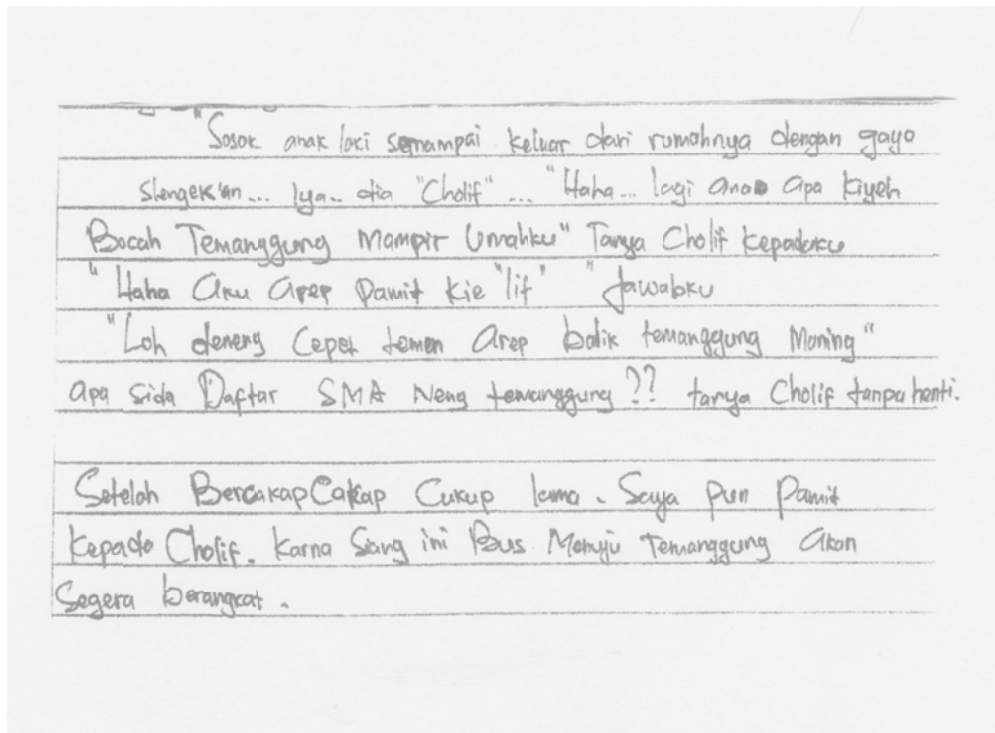 "Sosok anak laki semampai keluar dari rumahnya dengan gaya
slengek'an... Iya.. dia "Cholif"... "Haha... lagi ana apa kiyeh
Bocah Temanggung Mampir Umahku" Tanya Cholif kepadaku
"Haha Aku Arep Pamit kie "lif" "Jawabku
"Loh deneng Cepet temen Arep balik temanggung Maning"
apa sida Daftar SMA Neng temanggung ?? tanya Cholif tanpa henti.
Setelah BercakapCakap Cukup lama. Saya pun Pamit
Kepada Cholif. Karna Siang ini Bus Menuju Temanggung Akan
Segera berangkat.